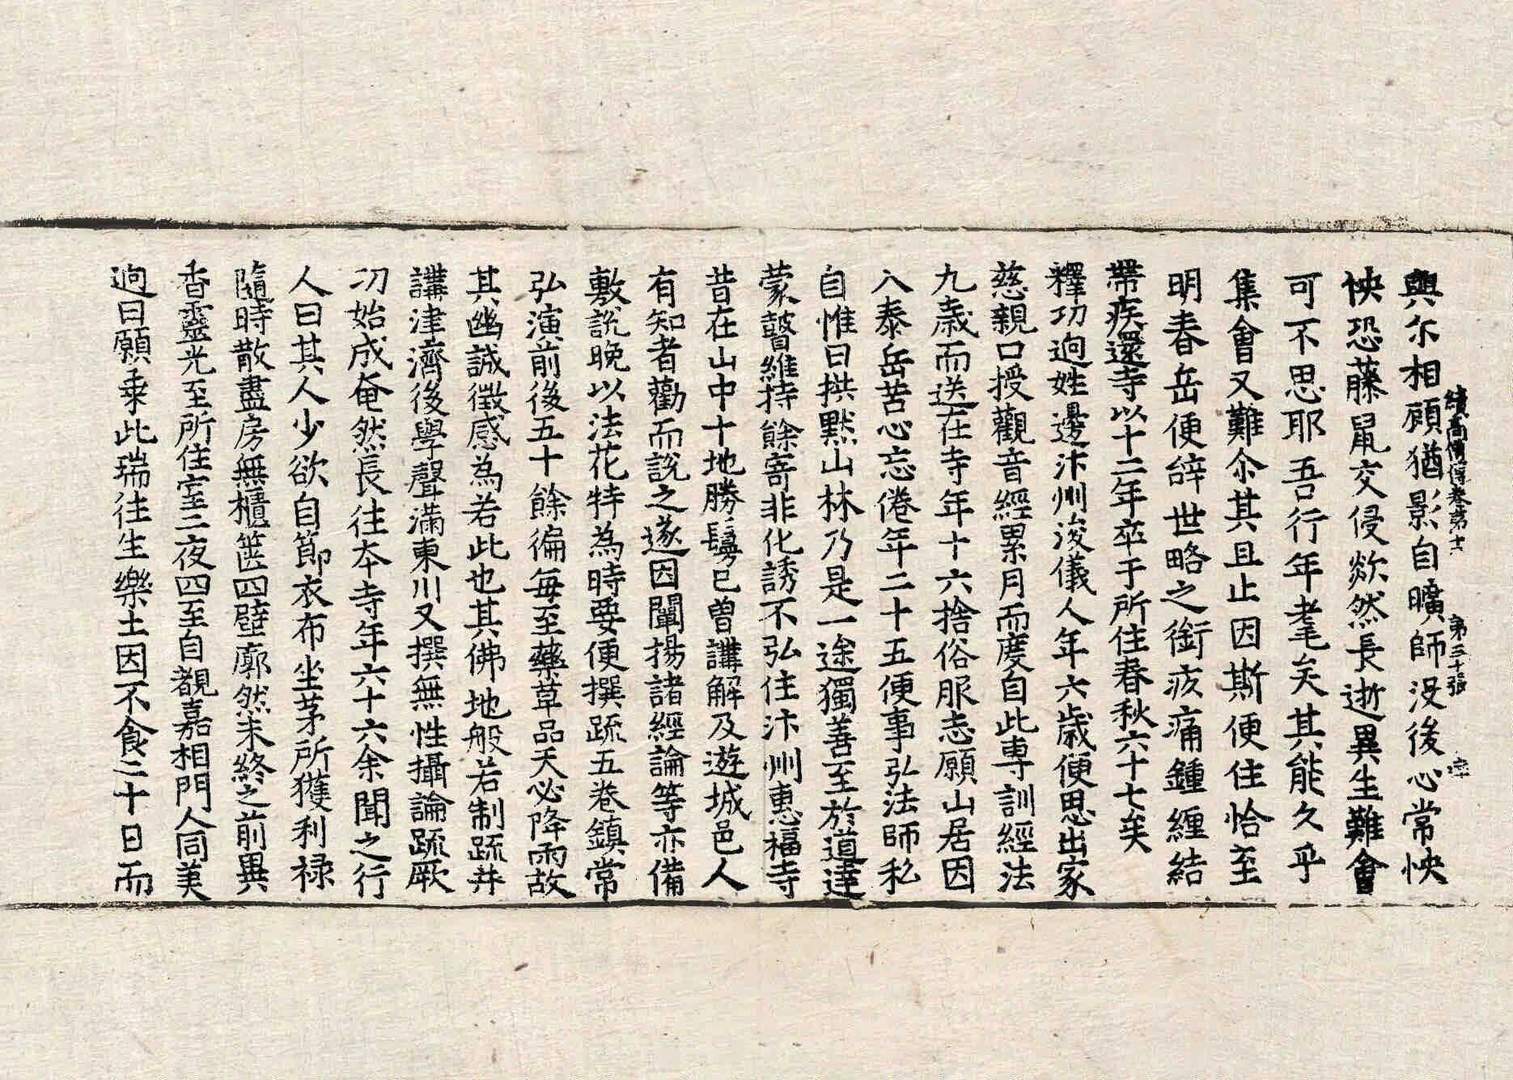 與尒相顧猶影自曠師没後心常怏
怏恐藤鼠交侵欻然長逝異生難會
可不思耶吾行年耄矣其能久乎
集會又難尒其且止因斯便住恰至
明春岳便辞世略之銜疚痛鍾纏結
帶疾還寺以十二年卒于所住春秋六十七矣
釋功逈姓邊汴州浚儀人年六歲便思出家
慈親口授觀音經累月而度自此專訓經法
九歲而送在寺年十六捨俗服志願山居因
入泰岳苦心忘倦年二十五便事弘法師私
自惟曰拱默山林乃是一途獨善至於道達
蒙瞽維持餘寄非化誘不弘住汴州惠福寺
昔在山中十地勝鬘已曾講解及遊城邑人
有知者勸而說之遂因闡揚諸經論等亦備
敷說晚以法花特為時要便撰疏五卷鎮常
弘演前後五十餘徧每至藥草品天必降雨故
其幽誠徵感為若此也其佛地般若制疏并
講津濟後學聲滿東川又撰無性攝論疏厥
功始成奄然長往本寺年六十六余聞之行
人曰其人少欲自節衣布坐茅所獲利祿
隨時散盡房無櫃篋四壁廓然未終之前異
香靈光至所住室二夜四至自覩嘉相門人同美
逈曰願乗此瑞往生樂土因不食二十日而
續高僧傳卷第十三　第三十張